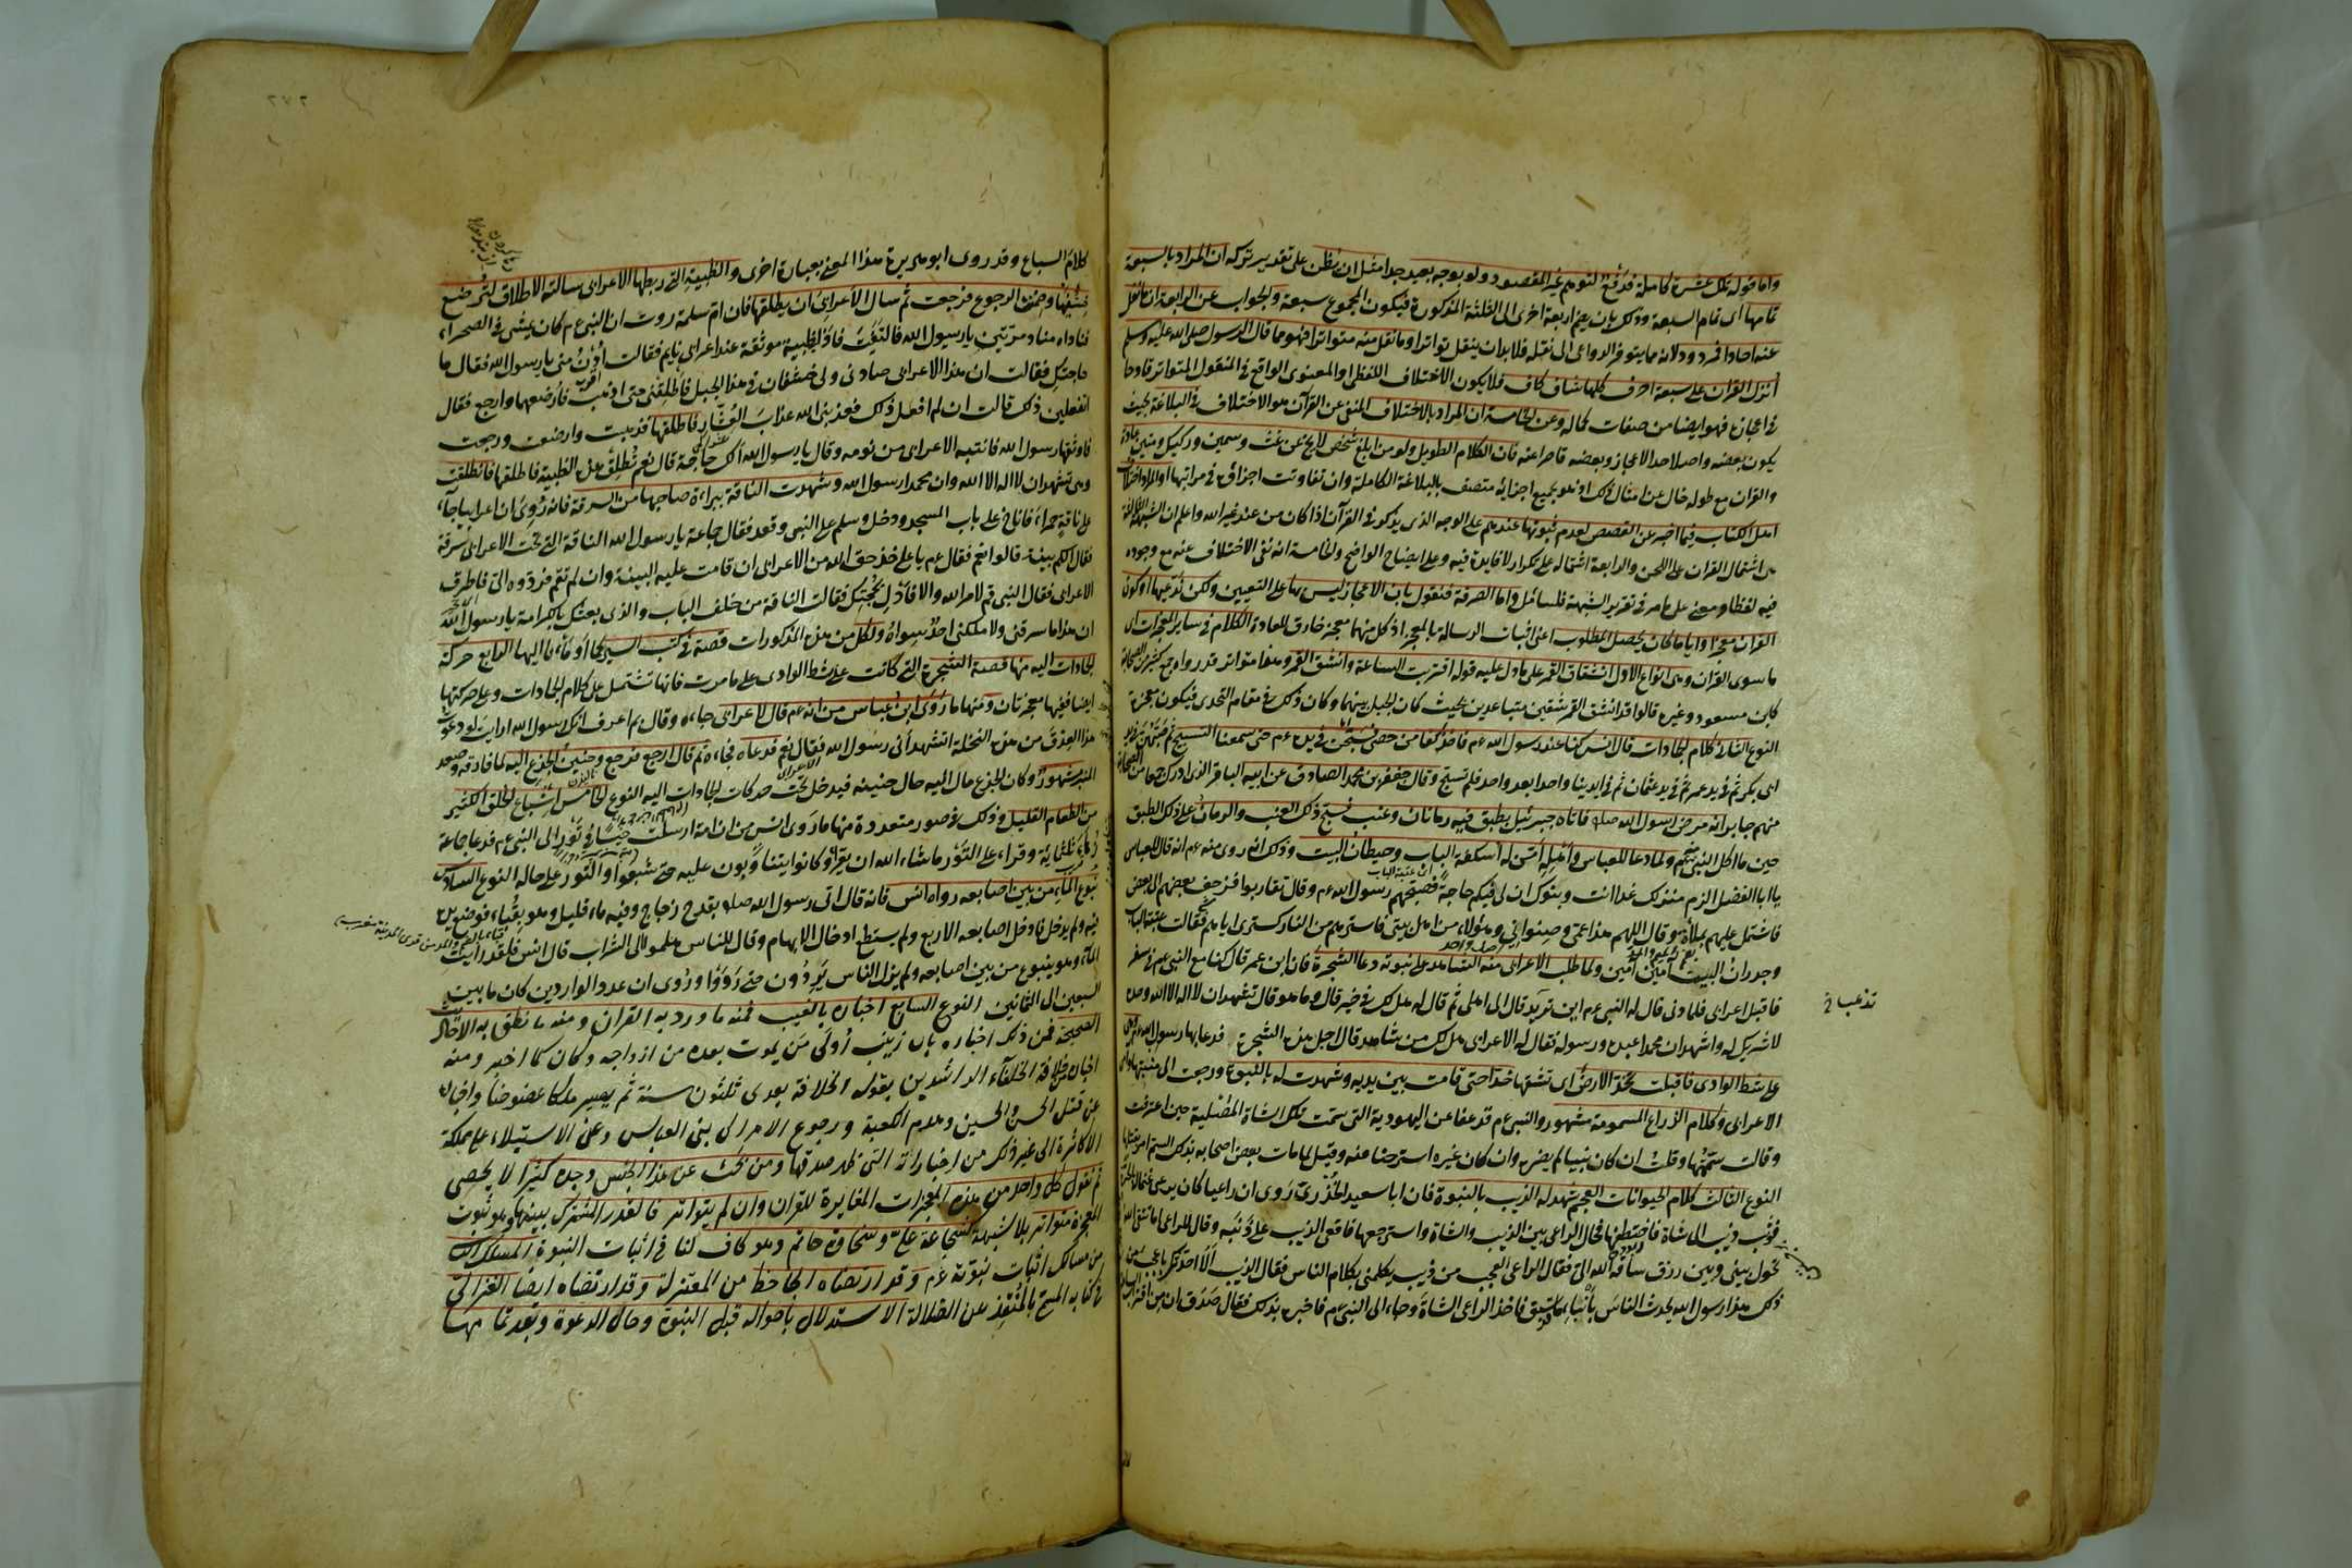 واما قوله تلك عشرة كاملة فدفع لتوهم غير المقصود ولو بوجه بعيد جدا مثل ان يظن على تقدير تركه ان المراد بالسبعة
تمامها اى تمام السبعة وذلك بان يضم اربعة اخرى الى الثلثة المذكورة فيكون المجموع سبعة والجواب عن الرابعة ان ما نقل
عنه احادا فمردود لانه مما يتوفر الدواعى الى نقله فلا بد ان ينقل تواترا وما نقل منه متواترا فهو مما قال الرسول صلى الله عليه وسلم
انزل القران على سبعة احرف كلها شاف كاف فلا يكون الاختلاف اللفظى او المعنوى الواقع فى المنقول المتواتر قادحا
فى اعجازه فهو ايضا من صفات كماله وعن الخامسة ان المراد بالاختلاف المنفى عن القرآن هو الاختلاف فى البلاغة بحيث
يكون بعضه واصلا حد الاعجاز وبعضه قاصرا عنه فان الكلام الطويل ولو من ابلغ شخص لا يخ عن غث وسمين وركيك ومتين عادة
والقران مع طوله خال عن امثال ذلك اذ هو بجميع اجزائه متصف بالبلاغة الكاملة وان تفاوتت اجزاؤه فى مراتبها او المراد اختلاف
اهل الكتاب فيما اخبر عن القصص لعدم ثبوتها عندهم على الوجه الذى يذكر فى القرآن اذا كان من عند غير الله واعلم ان الشبهة الثالثة
هى اشتمال القران على اللحن والرابعة اشتماله على تكرار لا فايدة فيه وعلى ايضاح الواضح والخامسة انه نفى الاختلاف عنه مع وجوده
فيه لفظا ومعنى على ما مر فى تقرير الشبهة فلسائل واما الصرفة فنقول بان الاعجاز ليس بها على التعيين ولكن ندعيها او كون
القران معجزا وايا ما كان يحصل المطلوب اعنى اثبات الرسالة بالمعجز اذ كل منهما معجز خارق للعادة الكلام فى ساير المعجزات اى
ما سوى القران وهى انواع الاول انشقاق القمر على ما دل عليه قوله اقتربت الساعة وانشق القمر وهذا متواتر قد رواه جمع كثير من الصحابة
كابن مسعود وغيره قالوا قد انشق القمر شقين متباعدين بحيث كان الجبل بينهما وكان ذلك فى مقام التحدى فيكون معجزة
النوع الثانى كلام الجمادات قال انس كنا عند رسول الله عم فاخذ كفا من حصى فسبحن فى يده عم حتى سمعنا التسبيح ثم صبهن فى يد
ابى بكر ثم فى يد عمر ثم فى يد عثمان ثم فى ايدينا واحدا بعد واحد فلم تسبح وقال جعفر بن محمد الصادق عن ابيه الباقر الذى ادرك جمعا من الصحابة
منهم جابر انه مرض رسول الله صلعم فاتاه جبرئيل بطبق فيه رمانان وعنب فسبح ذلك العنب والرمان على ذلك الطبق
حين ما اكل النبى منهم ولما دعا للعباس واهله امّن له اسكفة الباب وحيطان البيت وذلك انه روى عنه عم انه قال للعباس
يا ابا الفضل الزم منزلك غدا انت وبنوك ان لى فيكم حاجة فصبحهم رسول الله عم وقال تقاربوا فزحف بعضهم الى بعض
فاشتمل عليهم بملاءة وقال اللهم هذا عمى وصنو ابى وهؤلاء من اهل بيتى فاسترهم من النار كسترى اياهم فقالت عتبة الباب
وجدران البيت آمين آمين ولما طلب الاعرابى منه الشاهد على نبوته دعا الشجرة فان ابن عمر قال كنا مع النبى عم فى سفر
فاقبل اعرابى فلما دنى قال له النبى عم اين تريد قال الى اهلى ثم قال له هل لك فى خير قال وما هو قال تشهد ان لا اله الا الله وحده
لا شريك له واشهد ان محمدا عبده ورسوله فقال له الاعرابى هل لك من شاهد قال اجل هذه الشجرة فدعا بها رسول الله وهى
على شط الوادى فاقبلت تخد الارض اى تشقها خدا حتى قامت بين يديه وشهدت له بالنبوة ورجعت الى منبتها واسلم
الاعرابى وكلام الذراع المسمومة مشهور والنبى عم قد عفا عن اليهودية التى سمت تلك الشاة المصلية حين اعترفت
وقالت سممتها وقلت ان كان نبيا لم يضره وان كان غيره استرحنا منه وقيل لما مات بعض اصحابه بذلك السم امر بقتلها
النوع الثالث كلام الحيوانات العجم شهد له الذيب بالنبوة فان ابا سعيد الخدرى روى ان راعيا كان يرعى غنما بالحرة
فوثب ذيب الى شاة فاختطفها فحال الراعى بين الذيب والشاة واسترجعها فاقعى الذيب على ذنبه وقال للراعى اما تتقى الله
تحول بينى وبين رزق ساقه الله الى فقال الراعى العجب من ذيب يكلمنى بكلام الناس فقال الذيب الا احدثك باعجب من
ذلك هذا رسول الله يحدث الناس بانباء ما قد سبق فاخذ الراعى الشاة وجاء الى النبى عم فاخبره بذلك فقال صدق ان من اقتراب الساعة
تذهب خ
٢٧٢
كلام السباع وقد روى ابو هريرة هذا المعنى بعبارة اخرى والظبية التى ربطها الاعرابى سالته الاطلاق لترضع
خشفها وضمنت الرجوع فرجعت ثم سال الاعرابى ان يطلقها فان ام سلمة روت ان النبى عم كان يمشى فى الصحراء
فناداه مناد مرتين يا رسول الله فالتفت فاذا ظبية موثقة عند اعرابى نايم فقالت ادن منى يا رسول الله فقال ما
حاجتك فقالت ان هذا الاعرابى صادنى ولى خشفان فى هذا الجبل فاطلقنى حتى اذهب فارضعهما وارجع فقال
اتفعلين ذلك قالت ان لم افعل ذلك فعذبنى الله عذاب العشار فاطلقها فذهبت وارضعت ورجعت
فاوثقها رسول الله فانتبه الاعرابى من نومه وقال يا رسول الله الك حاجة قال نعم تطلق هذه الظبية فاطلقها فانطلقت
وهى تشهد ان لا اله الا الله وان محمدا رسول الله وشهدت الناقة ببراءة صاحبها من السرقة فانه روى ان اعرابيا جاء
على ناقة حمراء فاناخ على باب المسجد ودخل وسلم على النبى وقعد فقال جماعة يا رسول الله الناقة التى تحت الاعرابى سرقة
فقال الكم بينة قالوا نعم فقال عم يا على خذ حق الله من الاعرابى ان قامت عليه البينة وان لم تقم فردوه الى فاطرق
الاعرابى فقال النبى قم لامر الله والا فادل بحجتك فقالت الناقة من خلف الباب والذى بعثك بالكرامة يا رسول الله
ان هذا ما سرقنى ولا ملكنى احد سواه ولكل من هذه المذكورات قصة فى كتب السير كما اومانا اليها الرابع حركة
الجمادات اليه منها قصة الشجرة التى كانت على شط الوادى على ما مرت فانها تشتمل على كلام الجمادات وعلى حركتها
ايضا ففيها معجزتان ومنها ما روى ابن عباس من انه عم قال لاعرابى جاءه وقال بم اعرف انك رسول الله ارايت لو دعوت
هذا العذق من هذه النخلة اتشهد انى رسول الله فقال نعم فدعاه فجاءه ثم قال ارجع فرجع وحنين الجذع اليه لما فارقه وصعد
المنبر مشهور وكان الجذع مال اليه حال حنينه فيدخل تحت حركات الجمادات اليه النوع الخامس اشباع الخلق الكثير
من الطعام القليل وذلك فى صور متعددة منها ما روى انس من ان امه ارسلت حيسا فى تور الى النبى عم فدعا جماعة
زهاء ثلثماية وقراء على التور ما شاء الله ان يقرا وكانوا يتناوبون عليه حتى شبعوا والتور على حاله النوع السادس
نبوع الماء من بين اصابعه رواه انس فانه قال اتى رسول الله صلعم بقدح زجاج وفيه ماء قليل وهو بقباء فوضع يده
فيه ولم يدخل فادخل اصابعه الاربع ولم يستطع ادخال الابهام وقال للناس هلموا الى الشراب قال انس فلقد رايت
الماء وهو ينبوع من بين اصابعه ولم يزل الناس يردون حتى رووا وروى ان عدد الواردين كان ما بين
السبعين الى الثمانين النوع السابع اخباره بالغيب فمنه ما ورد به القران ومنه ما نطق به الاخبار
الصحيحة فمن ذلك اخباره بان زينب اولى من يموت بعده من ازواجه وكان كما اخبر ومنه
اخباره عن خلافة الخلفاء الراشدين بقوله الخلافة بعدى ثلثون سنة ثم يصير ملكا عضوضا واخباره
عن قتل الحسن والحسين وهدم الكعبة ورجوع الامر الى بنى العباس وعلى الاستيلاء على مملكة
الاكاسرة الى غير ذلك من اخباراته التى ظهر صدقها ومن بحث عن هذا الجنس وجده كثيرا لا يحصى
ثم نقول كل واحد من هذه المعجزات المغايرة للقران وان لم يتواتر فالقدر المشترك بينها وهو ثبوت
المعجزة متواتر بلا شبهة كشجاعة على وسخاوة حاتم وهو كاف لنا فى اثبات النبوة المسلك الثانى
من مسالك اثبات نبوته عم وقد ارتضاه الجاحظ من المعتزلة وقد ارتضاه ايضا الغزالى
فى كتابه المسمى بالمنقذ عن الضلالة الاستدلال باحواله قبل النبوة وحال الدعوة وبعد تمامها